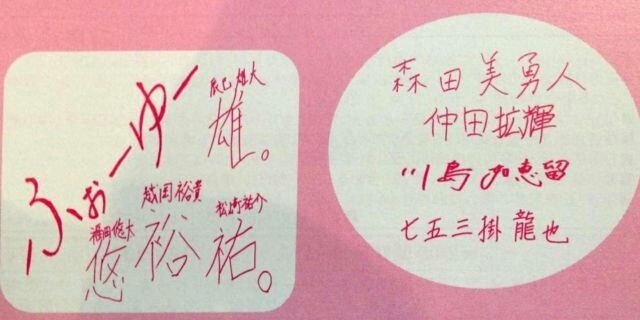 ふぉーゆー
辰巳雄大
雄。
越岡裕貴
裕
松崎祐介
祐。
福田悠太
悠
森田美勇人
仲田拡輝
川島如恵留
七五三掛龍也